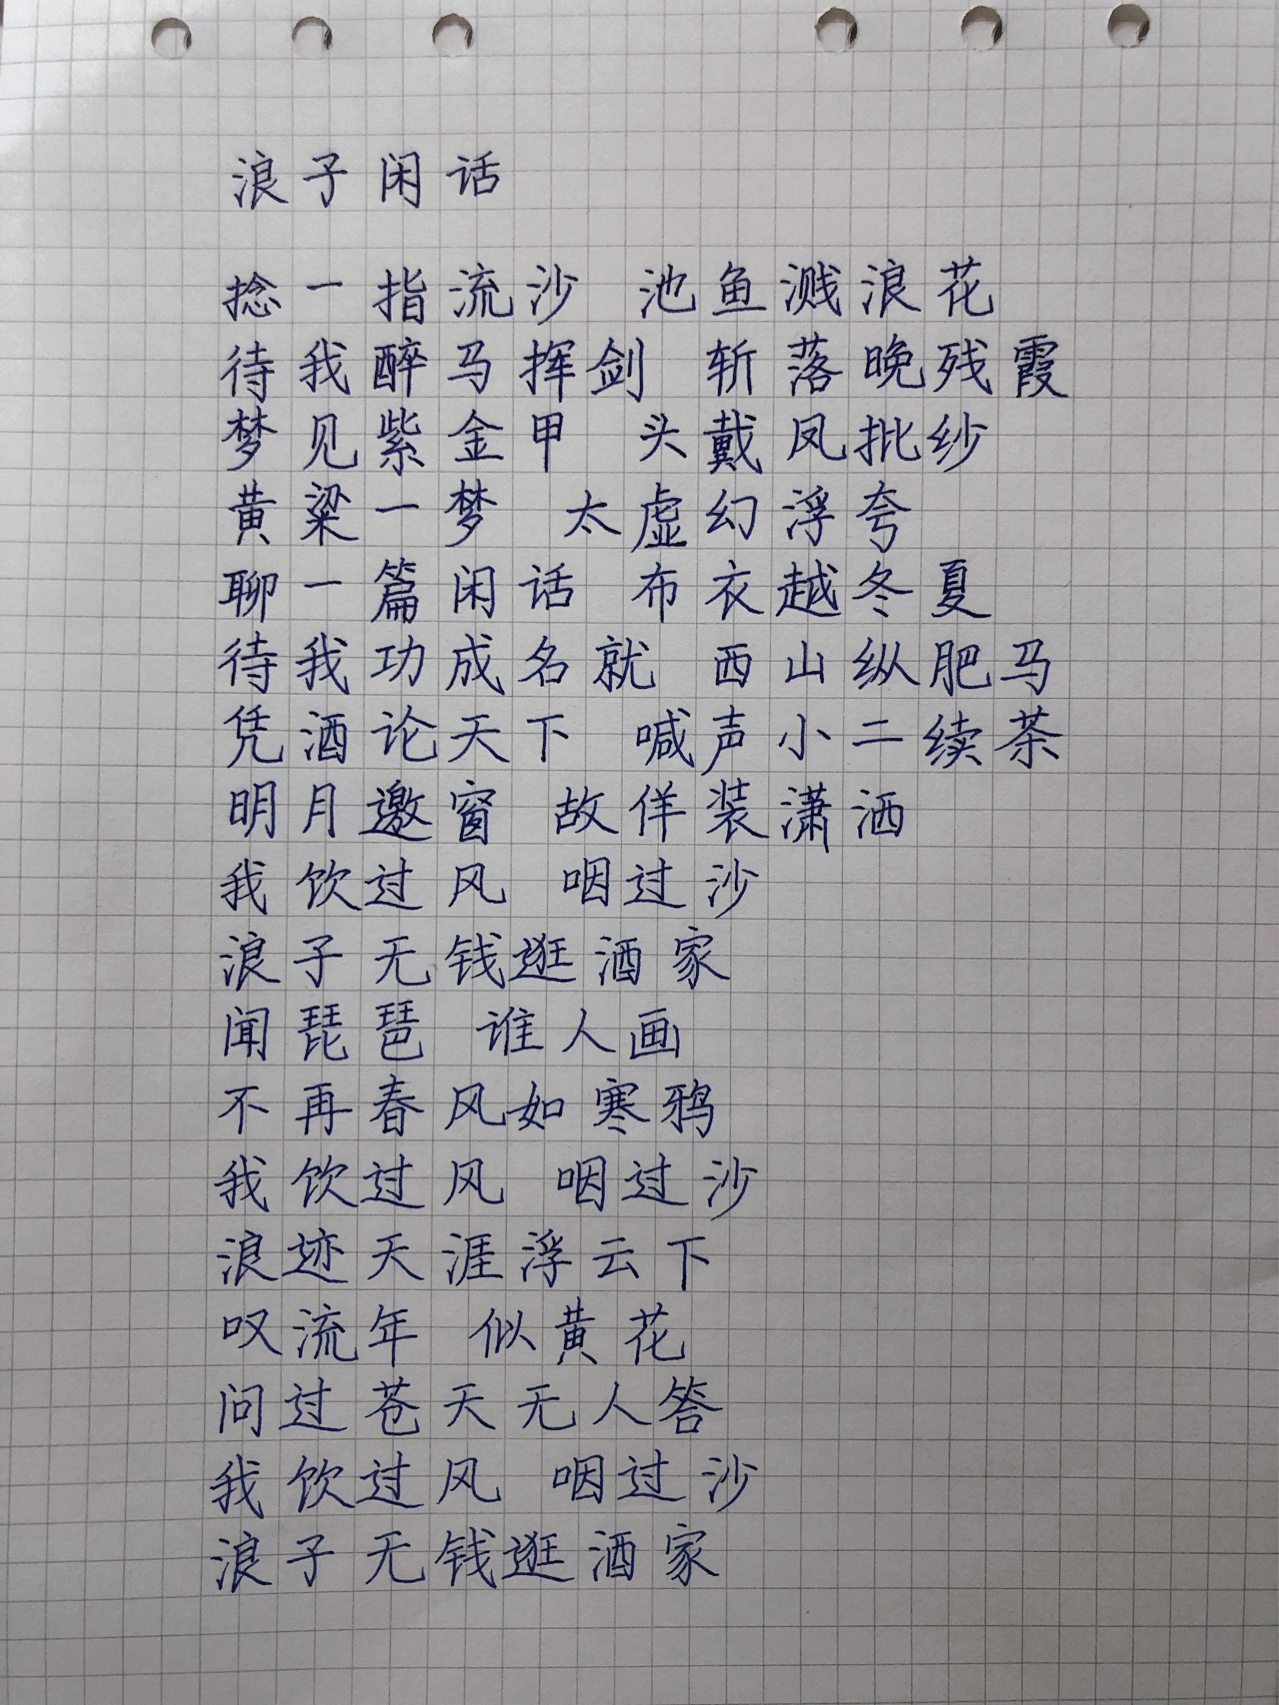 浪子闲话
捻一指流沙 池鱼溅浪花
待我醉马挥剑 斩落晚残霞
梦见紫金甲 头戴凤批纱
黄粱一梦 太虚幻浮夸
聊一篇闲话 布衣越冬夏
待我功成名就 西山纵肥马
凭酒论天下 喊声小二续茶
明月邀窗 故佯装潇洒
我饮过风 咽过沙
浪子无钱逛酒家
闻琵琶 谁人画
不再春风如寒鸦
我饮过风 咽过沙
浪迹天涯浮云下
叹流年 似黄花
问过苍天无人答
我饮过风 咽过沙
浪子无钱逛酒家